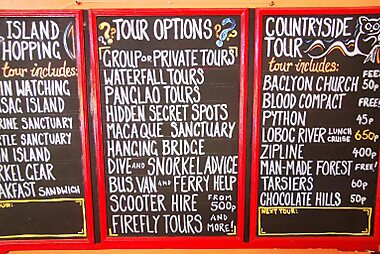 ISLAND
HOPPING
tour includes:
IN WATCHING
SAG ISLAND
RINE SANCTUARY
TLE SANCTUARY
N ISLAND
RKEL GEAR
AKFAST SANDWICH
OUR:
TOUR OPTIONS
GROUP or PRIVATE TOURS
WATERFALL TOURS
PANGLAO TOURS
HIDDEN SECRET SPOTS
MACAQUE SANCTUARY
HANGING BRIDGE
DIVE AND SNORKEL ADVICE
BUS, VAN AND FERRY HELP
SCOOTER HIRE FROM 500p
FIREFLY TOURS AND MORE!
COUNTRYSIDE
TOUR
tour includes: FEES
BACLYON CHURCH 50p
BLOOD COMPACT FREE
PYTHON 45p
LOBOC RIVER LUNCH CRUISE 650p
ZIPLINE 400p
MAN-MADE FOREST FREE!
TARSIERS 60p
CHOCOLATE HILLS 50p
NEXT TOUR: